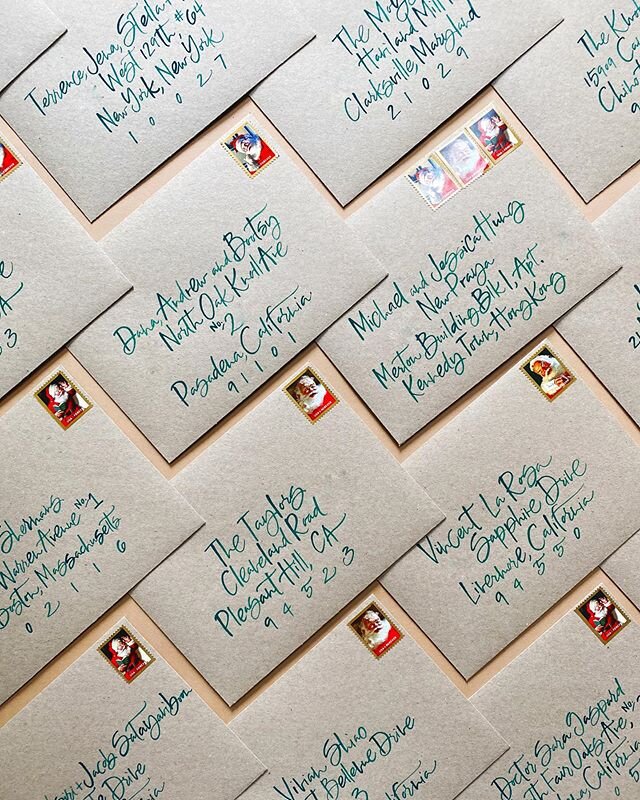 Terrence, Jena, Stella
West 129th #64
New York, New York
10027
The
Harland Mill
Clarksville, Maryland
21029
The
15909
Chino
9
CA
3
Dana, Andrew and Bootsy
North Oak Knoll Ave
No. 2
Pasadena, California
91101
Michael and Jessica Hung
New Praya
Merton Building Blk 1, Apt.
Kennedy Town, Hong Kong
2
Shermans
Warren Avenue No. 1
Boston, Massachusetts
02116
The Taylors
Cleaveland Road
Pleasant Hill, CA
94523
Vincent La Rosa
Sapphire Drive
Livermore, California
94550
+ Jacob Satayaribon
Drive
California
Vivian Shiao
Bellevue Drive
California
Doctor Sara Gaspard
Fair Oaks Ave, No.
California